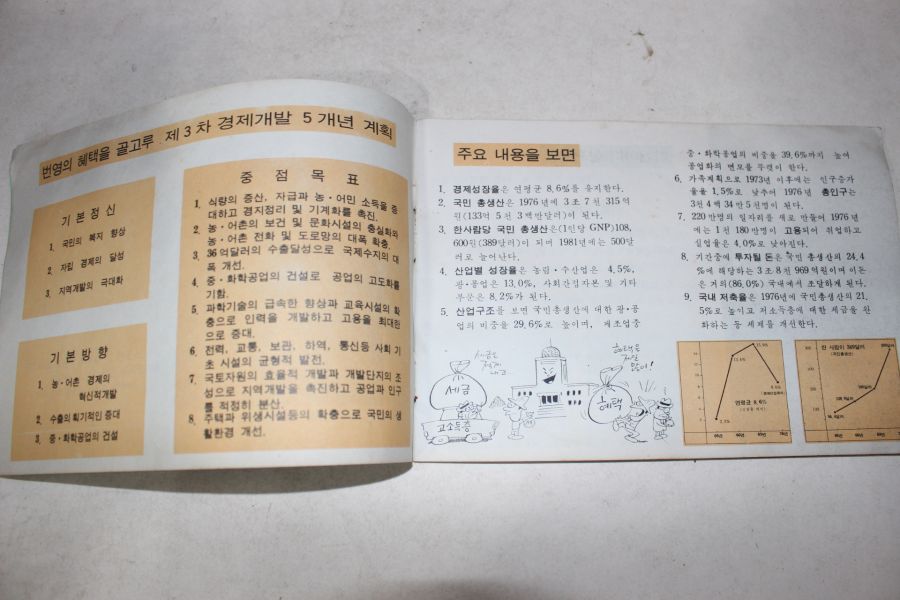 번영의 혜택을 골고루 제 3 차 경제개발 5 개년 계획
기본정신
1. 국민의 복지 향상
2. 자립 경제의 달성
3. 지역개발의 극대화
기본방향
1. 농·어촌 경제의
혁신적개발
2. 수출의 획기적인 증대
3. 중·화학공업의 건설
중 점 목 표
1. 식량의 증산, 자급과 농·어민 소득을 증
대하고 경지정리 및 기계화를 촉진.
2. 농·어촌의 보건 및 문화시설의 충실화와
농·어촌 전화 및 도로망의 대폭 확충.
3. 36억달러의 수출달성으로 국제수지의 대
폭 개선.
4. 중·화학공업의 건설로 공업의 고도화를
기함.
5. 과학기술의 급속한 향상과 교육시설의 확
충으로 인력을 개발하고 고용을 최대한
으로 증대.
6. 전력, 교통, 보관, 하역, 통신등 사회 기
초 시설의 균형적 발전.
7. 국토자원의 효율적 개발과 개발단지의 조
성으로 지역개발을 촉진하고 공업과 인구
를 적정히 분산.
8. 주택과 위생시설등의 확충으로 국민의 생
활환경 개선.
주요 내용을 보면
1. 경제성장율은 연평균 8.6%를 유지한다.
2. 국민 총생산은 1976년에 3조 7천 315억
원(133억 5천 3백만달러)이 된다.
3. 한사람당 국민 총생산은(1인당 GNP)108,
600원(389달러)이 되며 1981년에는 500달
러로 늘어난다.
4. 산업별 성장율은 농림·수산업은 4.5%,
광·공업은 13.0%, 사회간접자본 및 기타
부문은 8.2%가 된다.
5. 산업구조를 보면 국민총생산에 대한 광·공
업의 비중을 29.6%로 높이며, 제조업중
중·화학공업의 비중을 39.6%까지 높여
공업화의 면모를 뚜렷이 한다.
6. 가족계획으로 1973년 이후에는 인구증가
율을 1.5%로 낮추어 1976년 총인구는
3천 4백 34만 5천명이 된다.
7. 220만명의 일자리를 새로 만들어 1976년
에는 1천 180만명이 고용되어 취업하고
실업율은 4.0%로 낮아진다.
8. 기간중에 투자될 돈은 국민 총생산의 24.4
%에 해당하는 3조 8천 969억원이며 이돈
은 거의(86.0%) 국내에서 조달하게 된다.
9. 국내 저축율은 1976년에 국민총생산의 21.
5%로 높이고 저소득층에 대한 세금을 완
화하는 등 세제를 개선한다.
세금은
세금
고소득층
혜택은
혜택
연평균 8.6%
한 사람이 389달러